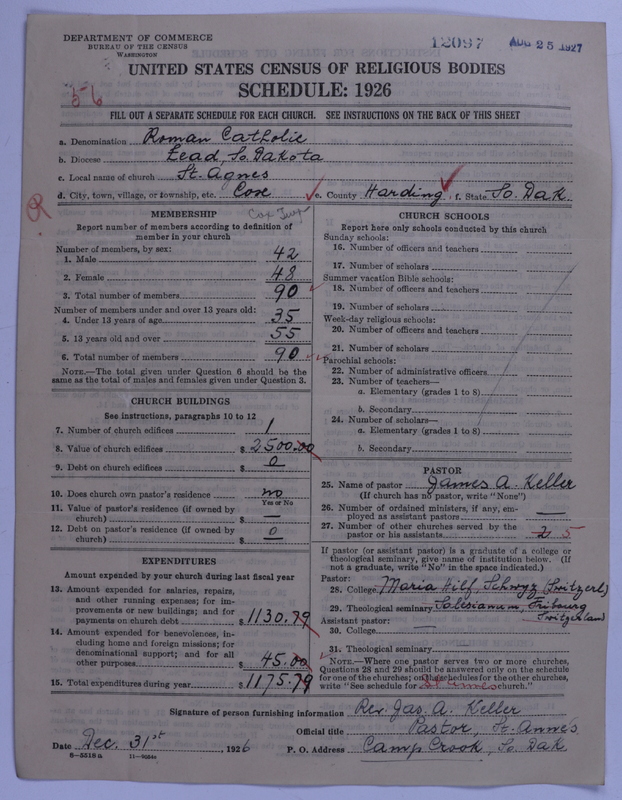 DEPARTMENT OF COMMERCE
BUREAU OF THE CENSUS
WASHINGTON
12097
AUG 25 1927
UNITED STATES CENSUS OF RELIGIOUS BODIES
SCHEDULE: 1926
56
FILL OUT A SEPARATE SCHEDULE FOR EACH CHURCH. SEE INSTRUCTIONS ON THE BACK OF THIS SHEET
a. Denomination Roman Catholic
b. Diocese Lead, So. Dakota
c. Local name of church St. Agnes
d. City, town, village, or township, etc. Cox e. County Harding, f. State So. Dak.
R
Cox Twp
MEMBERSHIP
Report number of members according to definition of
member in your church
Number of members, by sex:
1. Male 42
2. Female 48
3. Total number of members 90
Number of members under and over 13 years old:
4. Under 13 years of age 35
5. 13 years old and over 55
6. Total number of members 90
NOTE.—The total given under Question 6 should be the
same as the total of males and females given under Question 3.
CHURCH BUILDINGS
See instructions, paragraphs 10 to 12
7. Number of church edifices 1
8. Value of church edifices $ 2500.00
9. Debt on church edifices $ 0
10. Does church own pastor's residence no
Yes or No
11. Value of pastor's residence (if owned by
church) $ —
12. Debt on pastor's residence (if owned by
church) $ 0 —
EXPENDITURES
Amount expended by your church during last fiscal year
13. Amount expended for salaries, repairs,
and other running expenses; for im-
provements or new buildings; and for
payments on church debt $ 1130.79
14. Amount expended for benevolences, in-
cluding home and foreign missions; for
denominational support; and for all
other purposes $ 45.00
15. Total expenditures during year $ 1175.79
CHURCH SCHOOLS
Report here only schools conducted by this church
Sunday schools:
16. Number of officers and teachers
17. Number of scholars
Summer vacation Bible schools:
18. Number of officers and teachers
19. Number of scholars
Week-day religious schools:
20. Number of officers and teachers
21. Number of scholars
Parochial schools:
22. Number of administrative officers
23. Number of teachers—
a. Elementary (grades 1 to 8)
b. Secondary
24. Number of scholars—
a. Elementary (grades 1 to 8)
b. Secondary
PASTOR
25. Name of pastor James A. Keller
(If church has no pastor, write "None")
26. Number of ordained ministers, if any, em-
ployed as assistant pastors —
27. Number of other churches served by the
pastor or his assistants 2 5
If pastor (or assistant pastor) is a graduate of a college or
theological seminary, give name of institution below. (If
not a graduate, write "No" in the space indicated.)
Pastor:
28. College Maria Hilf, Schwyz (Switzerl)
29. Theological seminary Salesianum Fribourg
Switzerland
Assistant pastor:
30. College —
31. Theological seminary —
NOTE.—Where one pastor serves two or more churches,
Questions 28 and 29 should be answered only on the schedule
for one of the churches; on the schedules for the other churches,
write "See schedule for church."
Signature of person furnishing information Rev. Jas. A. Keller
Official title Pastor, St. Annes
Date Dec. 31st, 1926 P. O. Address Camp Crook, So. Dak.